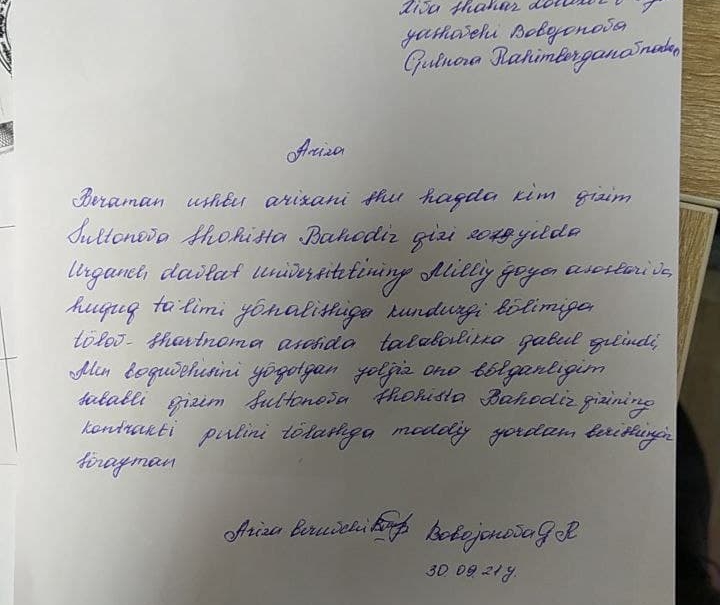 Xiva shahar
yashovchi Bobojonova
Gulnora Rahimberganovnadan
Ariza
Beraman ushbu arizani shu haqda kim qizim
Sultonova Shohista Bahodir qizi 2019 yilda
Urganch davlat universitetining Milliy ğoya asoslari va
huquq ta'limi yönalishiga kunduzgi bölimiga
tölov-shartnoma asosida talabalikka qabul qilindi,
Men boquvchisini yöqotgan yolğiz ona bölganligim
sababli qizim Sultonova Shohista Bahodir qizining
kontrakti pulini tölashga moddiy yordam berishingizni
sörayman
Ariza beruvchi Bobojonova G R
30.09.21 y.